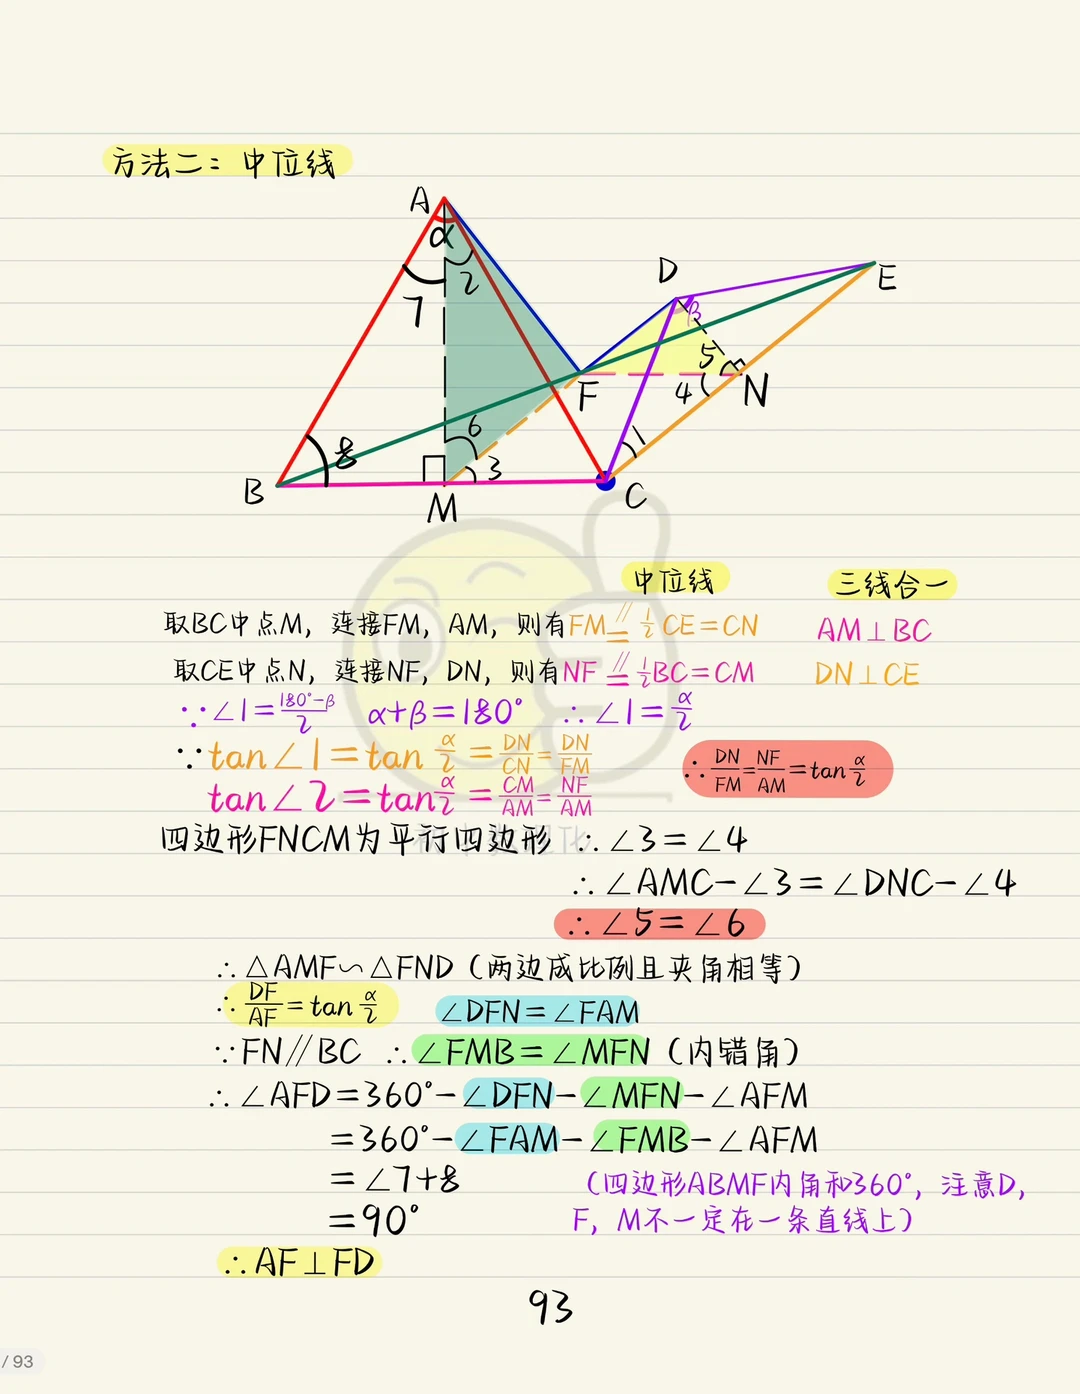 方法二：中位线
A
α
2
7
D
E
β
5
F
4
N
6
8
1
3
B
M
C
中位线 三线合一
取BC中点M，连接FM，AM，则有FM∥=1/2CE=CN AM⊥BC
取CE中点N，连接NF，DN，则有NF∥=1/2BC=CM DN⊥CE
∵∠1=(180°-β)/2 α+β=180° ∴∠1=α/2
∵tan∠1=tan α/2=DN/CN=DN/FM ∴DN/FM=NF/AM=tan α/2
tan∠2=tan α/2=CM/AM=NF/AM
四边形FNCM为平行四边形 ∴∠3=∠4
∴∠AMC-∠3=∠DNC-∠4
∴∠5=∠6
∴△AMF∽△FND（两边成比例且夹角相等）
∴DF/AF=tan α/2 ∠DFN=∠FAM
∵FN∥BC ∴∠FMB=∠MFN（内错角）
∴∠AFD=360°-∠DFN-∠MFN-∠AFM
=360°-∠FAM-∠FMB-∠AFM
=∠7+8 （四边形ABMF内角和360°，注意D，
=90° F，M不一定在一条直线上）
∴AF⊥FD
93
/ 93